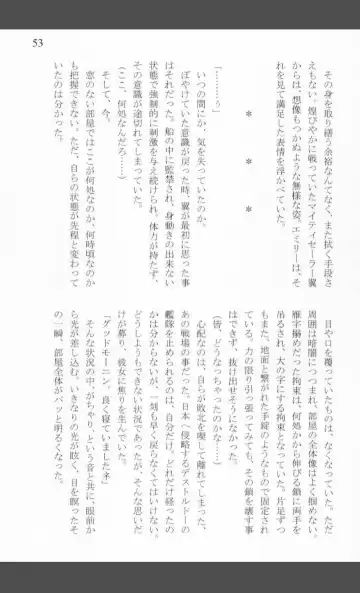 その身を取り繕う余裕なんてなく、また拭く手段さ
えもない。煌びやかに戦っていたマイティセーラー翼
からは、想像もつかぬような無様な姿。エミリーは、そ
れを見て満足した表情を浮かべていた。
＊　＊　＊
「………う」
いつの間にか、気を失っていたのか。
ぼやけていた意識が戻った時、翼が最初に思った事
はそれだった。船の中に監禁され、身動きの出来ない
状態で強制的に刺激を与え続けられ、体力が持たず、
その意識が途切れてしまっていた。
（ここ、何処なんだろ……）
そして、今。
窓のない部屋ではここが何処なのか、何時頃なのか
も把握できない。ただ、自らの状態が先程と変わって
いたのは分かった。
目や口を覆っていたものは、なくなっていた。ただ
周囲は暗闇につつまれ、部屋の全体像はよく掴めない。
雁字搦めだった拘束は、何処かから伸びる鎖に両手を
吊るされ、大の字にする拘束となっていた。片足ずつ
もまた、地面と繋がれた手錠のようなもので固定され
ている。力の限り引っ張ってみても、その鎖を壊す事
はできず、抜け出せそうになかった。
（皆、どうなっちゃったのかな…）
心配なのは、自らが敗北を喫して離れてしまった、
あの戦場の事だ。日本へ侵略するデストルドーの
艦隊を止められるのは、自分だけ。どれだけ経ったの
かは分からないが、一刻も早く戻らなくてはいけない。
どうしようもできない状況であったが、そんな思いだ
けが募り、彼女に焦りを生んでいた。
「グッドモーニン、良く寝ていましたネ」
そんな状況の中、がちゃり、という音と共に、眼前か
ら光が差し込む。いきなりの光が眩く、目を瞑ったそ
の一瞬、部屋全体がパッと明るくなった。
53